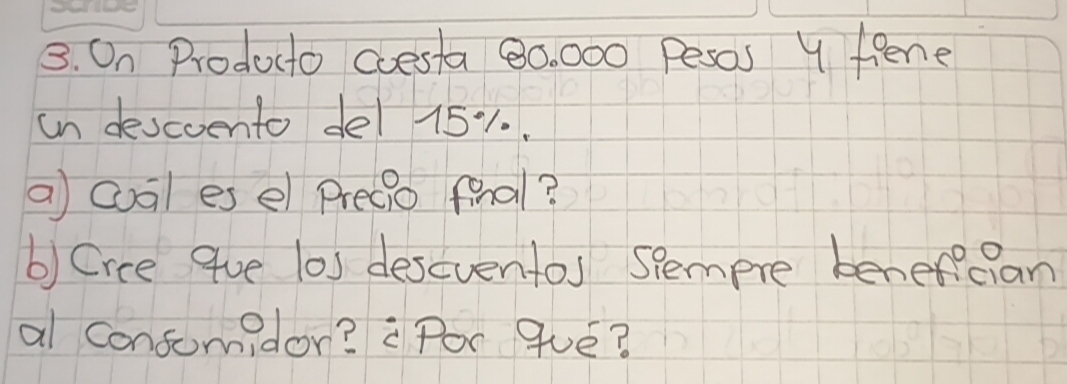 3. Un Producto cuesta 80.000 Pesos y tiene
un descuento del 15%.
a) Cuál es el Precio final?
b) Cree que los descuentos siempre benefician
al consumidor? ¿Por qué?